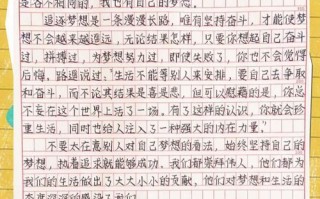 是各不相同的，我也有自己的梦想。
追逐梦想是一条漫漫长路，唯有坚持奋斗，才能使梦
想不会越来越遥远，无论结果怎样，只要你想起自己奋斗
过，拼搏过，为梦想努力过，即使失败了，你也不会觉得
后悔。路遥说过："生活不能等别人来安排，要自己去争取
和奋斗，而不论其结果是喜是悲，但可以慰藉的是，你总
不妄在这个世界上活了一场。有了这样的认识，你就会珍
重生活，同时也给人注入了一种强大的内在力量。"
不要太在意别人对自己梦想的看法，始终坚持自己的
梦想，执着追求就能够成功。我们都崇拜伟人，他们都为
我们的生活做出了大大小小的贡献，他们对梦想和生活的
态度深深的感染了我们